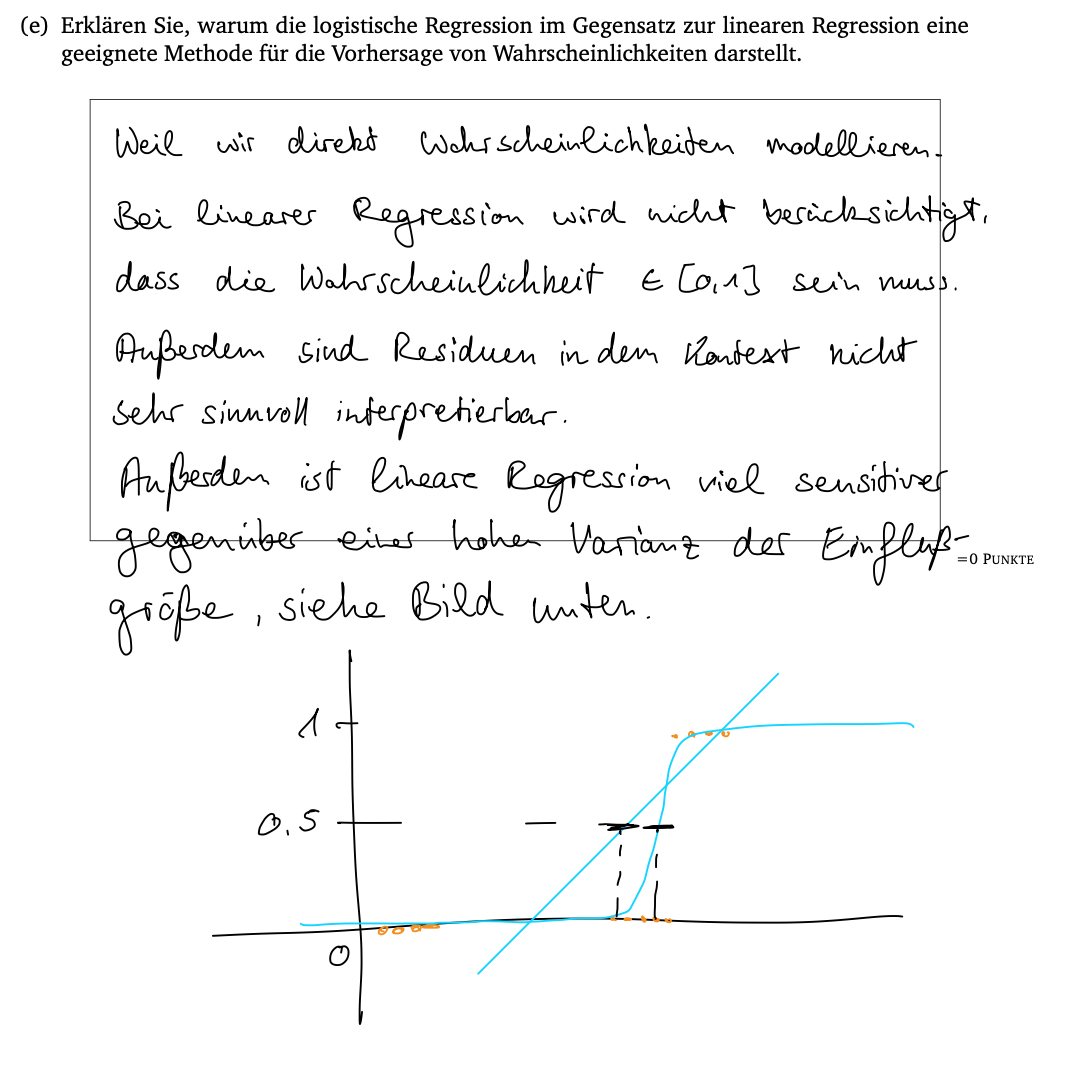 (e) Erklären Sie, warum die logistische Regression im Gegensatz zur linearen Regression eine
geeignete Methode für die Vorhersage von Wahrscheinlichkeiten darstellt.
Weil wir direkt Wahrscheinlichkeiten modellieren.
Bei linearer Regression wird nicht berücksichtigt,
dass die Wahrscheinlichkeit ∈ [0,1] sein muss.
Außerdem sind Residuen in dem Kontext nicht
sehr sinnvoll interpretierbar.
Außerden ist lineare Regression viel sensitiver
gegenüber einer hohen Varianz der Einfluß-
=0 PUNKTE
größe, siehe Bild unten.
1
0.5
0